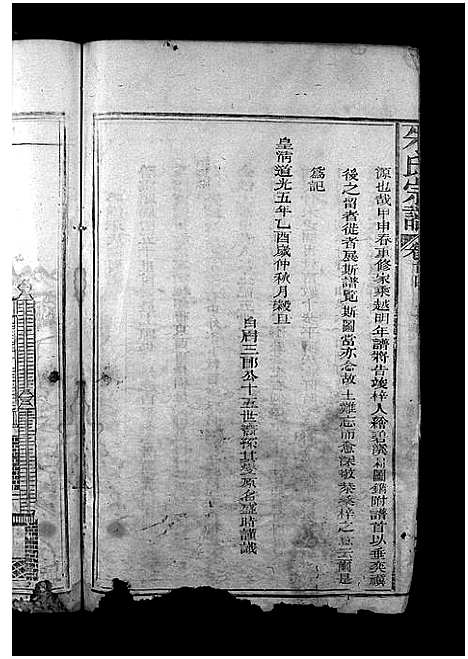 朱氏宗譜
卷首
源也哉甲申春重修家乘越明年譜將告竣梓人繪碧溪村圖鐫附譜首以垂奕禩
後之留者徙者展斯譜覽斯圖當亦念故土難忘而愈深敬恭桑梓之意云爾是
為記
皇清道光五年乙酉歲仲秋月穀旦
十五世裔孫其燮原名盛時謹識